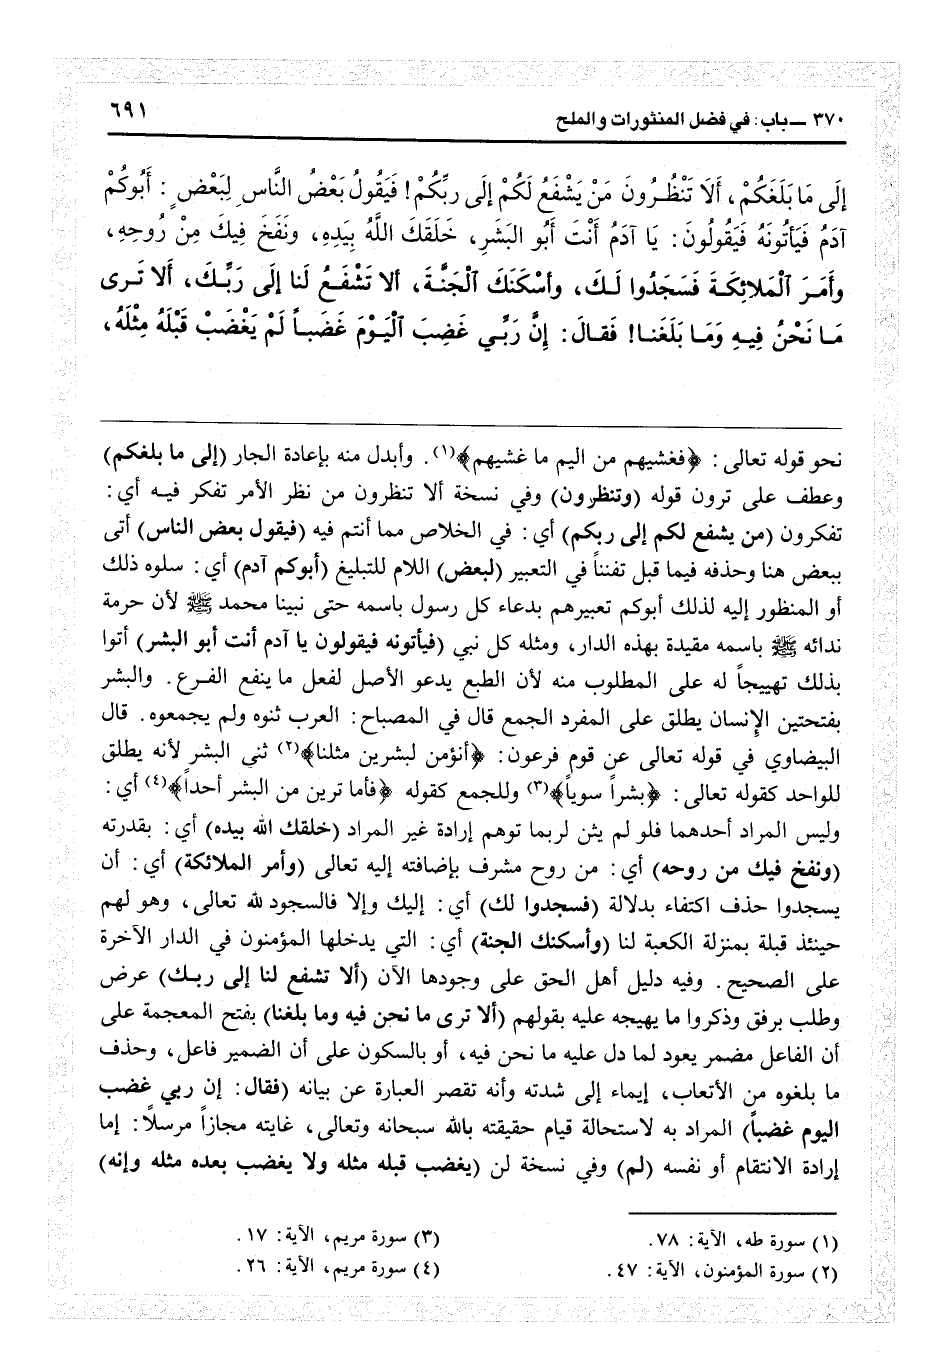 ٣٧٠ ــ باب: في فضل المنثورات والملح ٦٩١
إلَى مَا بَلَغَكُمْ، أَلَا تَنْظُـرُونَ مَنْ يَشْفَعُ لَكُمْ إلَى ربِّكُمْ! فَيَقُولُ بَعْضُ النَّاسِ لِبَعْضٍ: أَبُوكُمْ
آدَمُ فَيَأْتُونَهُ فَيَقُولُونَ: يَا آدَمُ أَنْتَ أَبُو البَشَرِ، خَلَقَكَ اللَّهُ بِيَدِهِ، ونَفَخَ فِيكَ مِنْ رُوحِهِ،
وأَمَـرَ ٱلْمَلائِكَـةَ فَسَجَدُوا لَـكَ، وأَسْكَنَكَ ٱلْجَنَّـةَ، أَلا تَشْفَـعُ لَنا إلَى رَبِّـكَ، أَلا تَـرى
مَـا نَحْنُ فِيـهِ وَمَـا بَلَغَنـا! فَقـالَ: إنَّ رَبِّـي غَضِبَ ٱلْيَـوْمَ غَضَبـاً لَمْ يَغْضَبْ قَبْلَهُ مِثْلَهُ،
نحو قوله تعالى: ﴿فغشيهم من اليم ما غشيهم﴾(١). وأبدل منه بإعادة الجار (إلى ما بلغكم)
وعطف على ترون قوله (وتنظرون) وفي نسخة ألا تنظرون من نظر الأمر تفكر فيـه أي:
تفكرون (من يشفع لكم إلى ربكم) أي: في الخلاص مما أنتم فيه (فيقول بعض الناس) أتى
ببعض هنا وحذفه فيما قبل تفنناً في التعبير (لبعض) اللام للتبليغ (أبوكم آدم) أي: سلوه ذلك
أو المنظور إليه لذلك أبوكم تعبيرهم بدعاء كل رسول باسمه حتى نبينا محمد ﷺ لأن حرمة
ندائه ﷺ باسمه مقيدة بهذه الدار، ومثله كل نبي (فيأتونه فيقولون يا آدم أنت أبو البشر) أتوا
بذلك تهييجاً له على المطلوب منه لأن الطبع يدعو الأصل لفعل ما ينفع الفـرع. والبشر
بفتحتين الإنسان يطلق على المفرد الجمع قال في المصباح: العرب ثنوه ولم يجمعوه. قال
البيضاوي في قوله تعالى عن قوم فرعون: ﴿أنؤمن لبشرين مثلنا﴾(٢) ثني البشر لأنه يطلق
للواحد كقوله تعالى: ﴿بشراً سوياً﴾(٣) وللجمع كقوله ﴿فأما ترين من البشر أحداً﴾(٤) أي:
وليس المراد أحدهما فلو لم يثن لربما توهم إرادة غير المراد (خلقك الله بيده) أي: بقدرته
(ونفخ فيك من روحه) أي: من روح مشرف بإضافته إليه تعالى (وأمر الملائكة) أي: أن
يسجدوا حذف اكتفاء بدلالة (فسجدوا لك) أي: إليك وإلا فالسجود لله تعالى، وهو لهم
حينئذ قبلة بمنزلة الكعبة لنا (وأسكنك الجنة) أي: التي يدخلها المؤمنون في الدار الآخرة
على الصحيح. وفيه دليل أهل الحق على وجودها الآن (ألا تشفع لنا إلى ربـك) عرض
وطلب برفق وذكروا ما يهيجه عليه بقولهم (ألا ترى ما نحن فيه وما بلغنا) بفتح المعجمة على
أن الفاعل مضمر يعود لما دل عليه ما نحن فيه، أو بالسكون على أن الضمير فاعل، وحذف
ما بلغوه من الأتعاب، إيماء إلى شدته وأنه تقصر العبارة عن بيانه (فقال: إن ربي غضب
اليوم غضباً) المراد به لاستحالة قيام حقيقته بالله سبحانه وتعالى، غايته مجازاً مرسلاً: إما
إرادة الانتقام أو نفسه (لم) وفي نسخة لن (يغضب قبله مثله ولا يغضب بعده مثله وإنه)
(١) سورة طه، الآية: ٧٨.
(٢) سورة المؤمنون، الآية: ٤٧.
(٣) سورة مريم، الآية: ١٧.
(٤) سورة مريم، الآية: ٢٦.